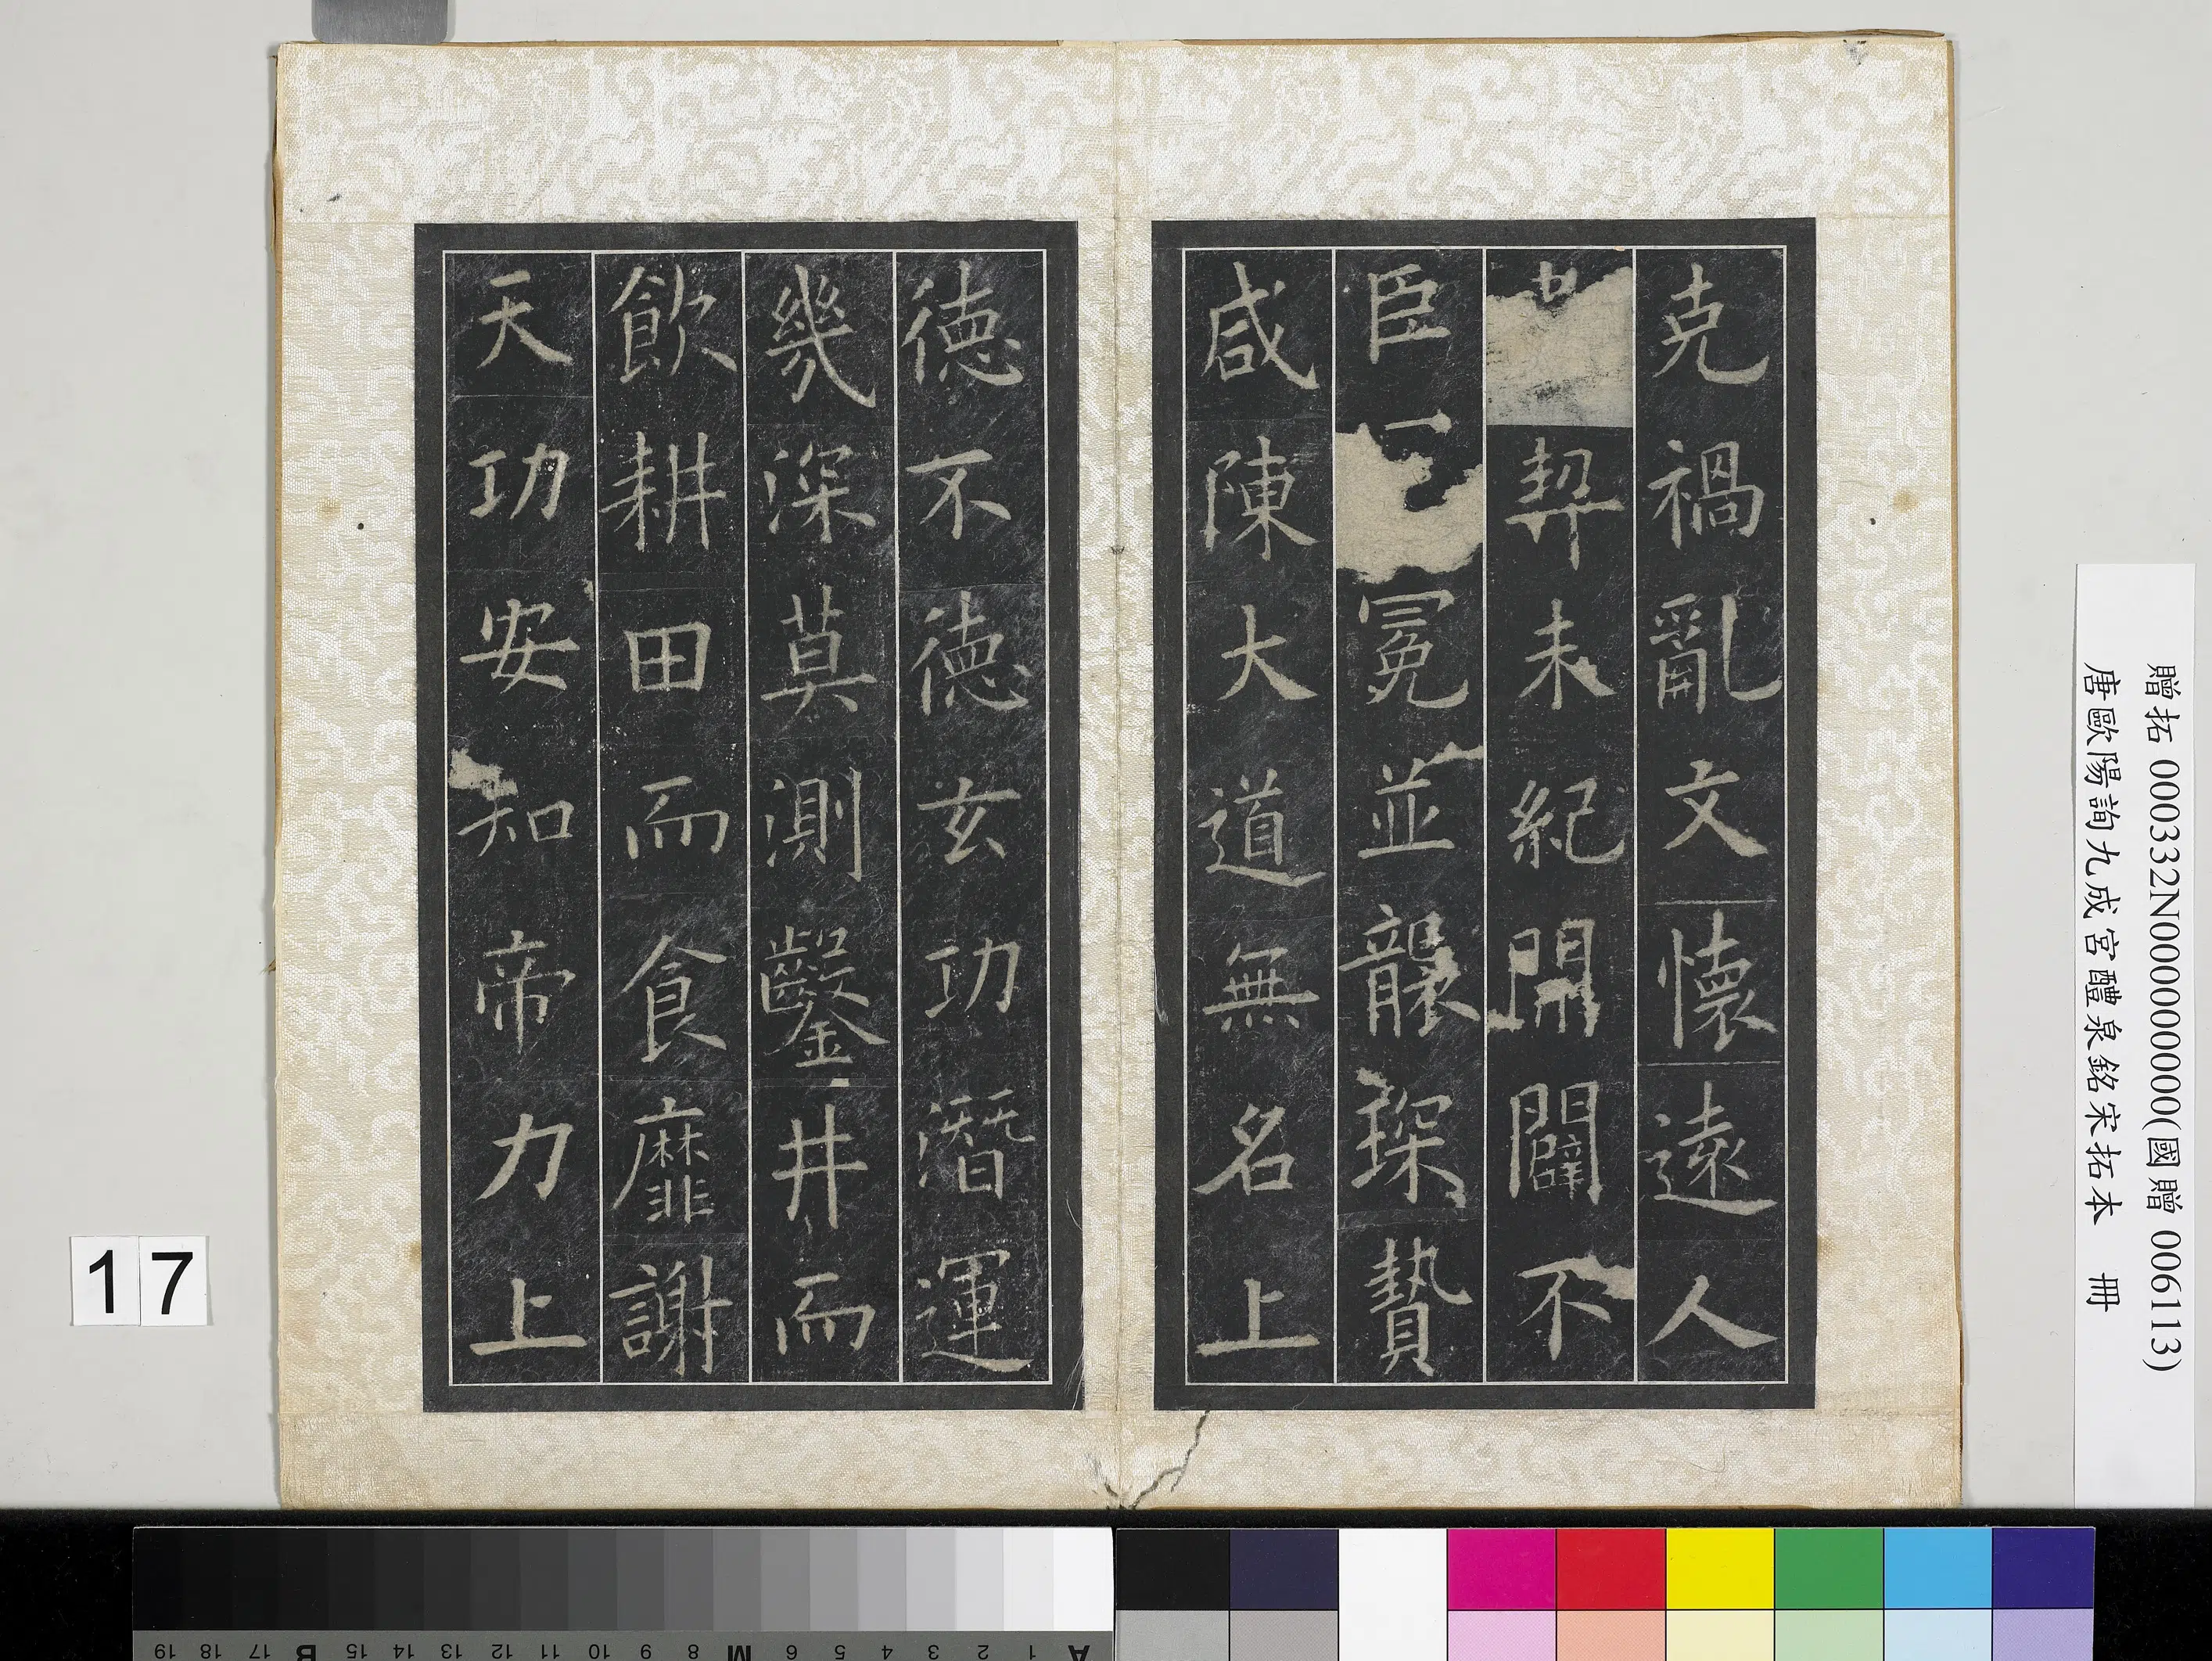 克禍亂文懷遠人
契未紀開闢不
臣冠冕並襲琛贄
咸陳大道無名上
德不德玄功潛運
幾深莫測鑿井而
飲耕田而食靡謝
天功安知帝力上
贈拓 000332N000000000(國贈 006113)
唐歐陽詢九成宮醴泉銘宋拓本 冊
17
A 1 2 3 4 5 6 M 8 9 10 11 12 13 14 15 B 17 18 19